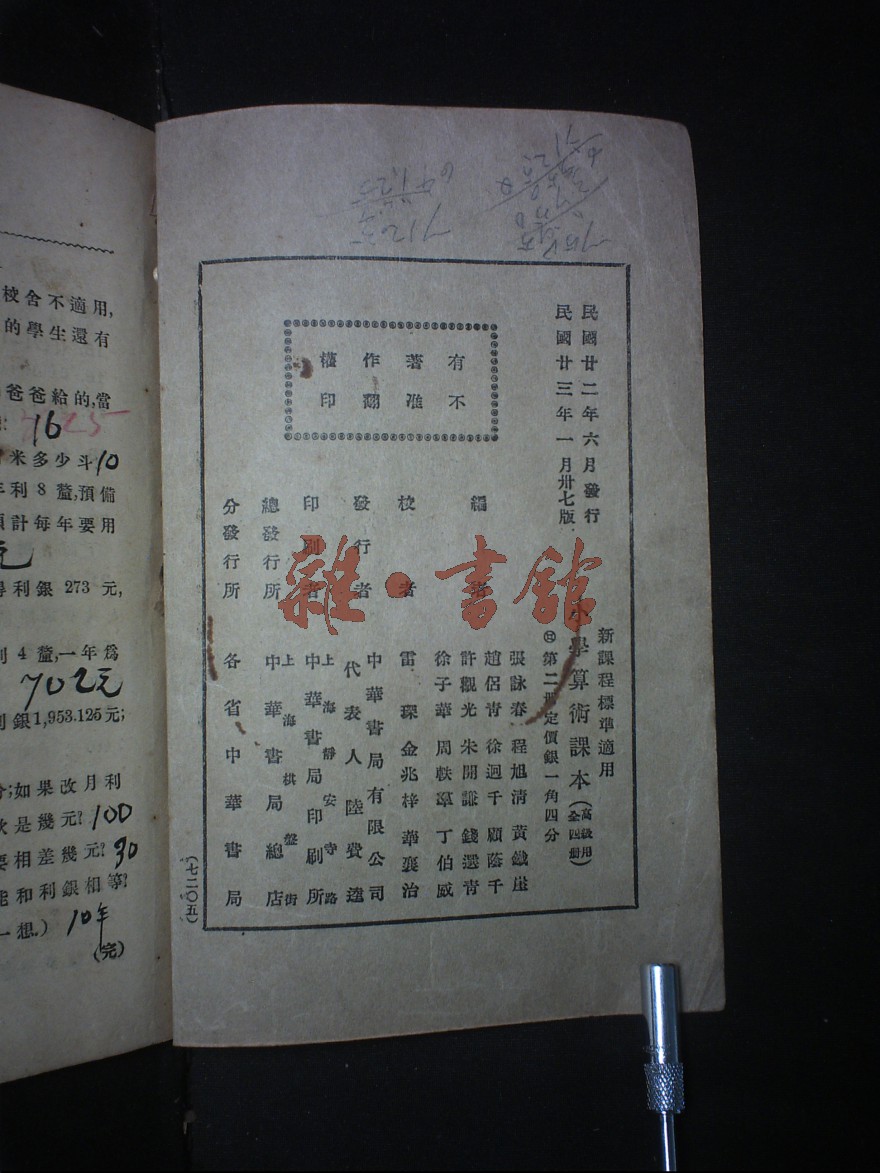 民國廿二年六月發行
民國廿三年一月卅七版
有不
著准
作翻
權印
新課程標準適用
小學算術課本(高級用全四冊)
第二冊定價銀一角四分
編者
張詠春 程旭清 黃鐵崖
趙侶青 徐迥千 顧蔭千
許觀光 朱開謙 錢選青
徐子華 周軼羣 丁伯威
校者
雷琛 金兆梓 華襄治
發行者
中華書局有限公司
代表人 陸費逵
印刷者
上海靜安寺路
中華書局印刷所
總發行所
上海棋盤街
中華書局總店
分發行所
各省中華書局
(七二〇五)
雜·書館
校舍不適用,
的學生還有
爸爸給的,當
16
25
米多少斗 10
年利8釐,預備
預計每年要用
元
得利銀 273 元,
利4釐,一年為
702元
利銀1,953.125元;
分;如果改月利
次是幾元? 100
要相差幾元? 30
能和利銀相等?
一想.) 10年
(完)